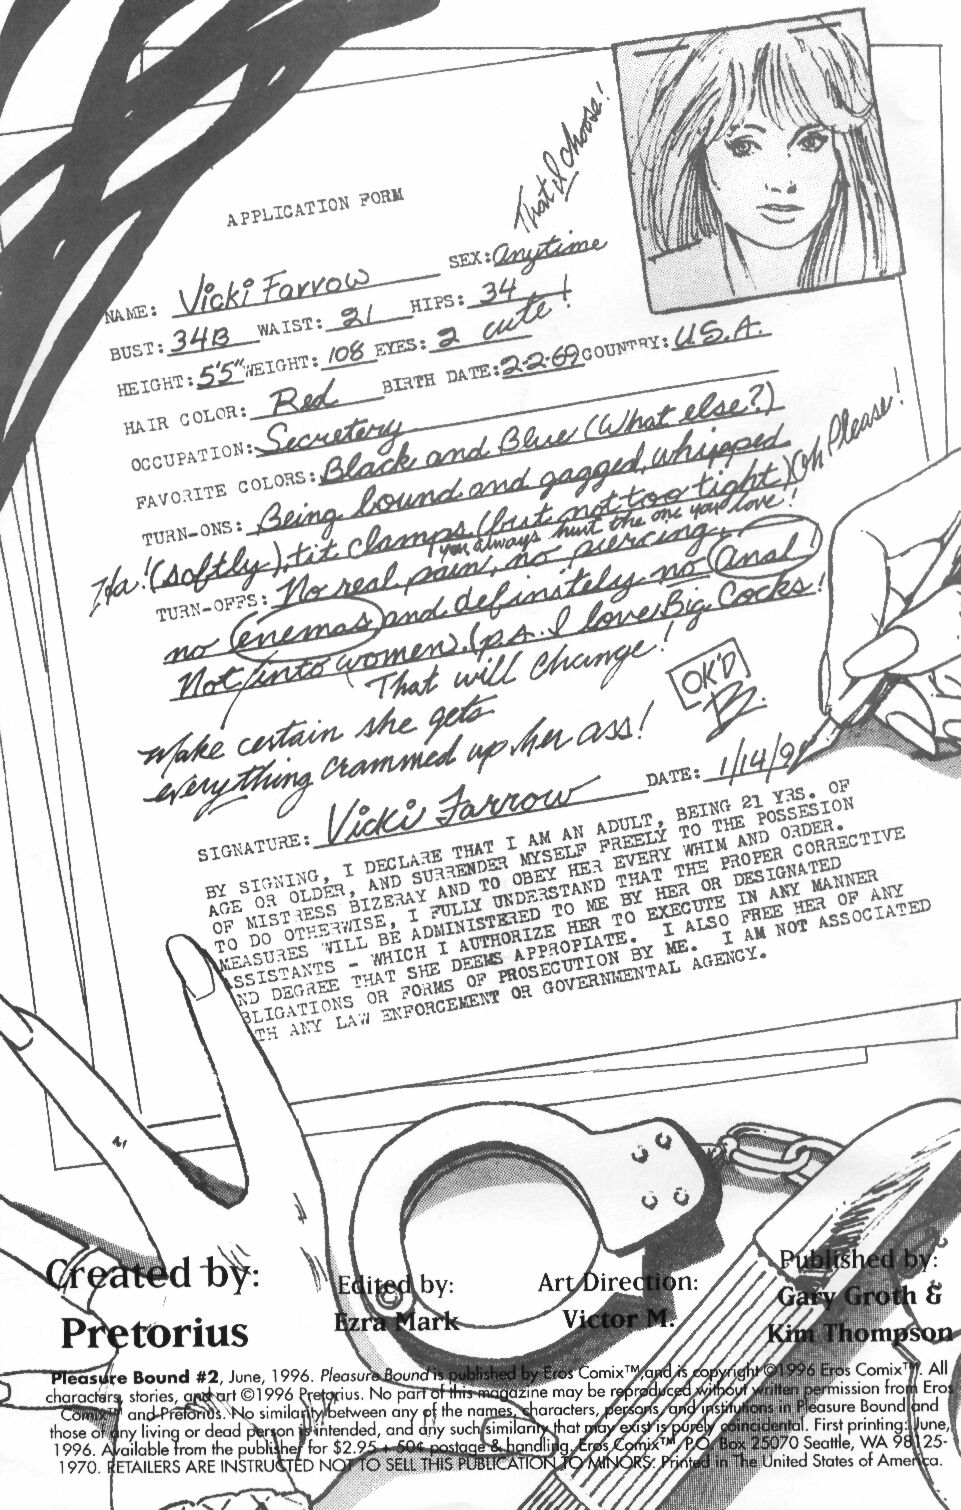 That I choose!
APPLICATION FORM
NAME: Vicki Farrow SEX: Anytime
BUST: 34B WAIST: 21 HIPS: 34
HEIGHT: 5'5" WEIGHT: 108 EYES: 2 cute!
HAIR COLOR: Red BIRTH DATE: 2-2-69 COUNTRY: U.S.A.
OCCUPATION: Secretery
FAVORITE COLORS: Black and Blue (What else?)
TURN-ONS: Being bound and gagged, whipped
Ha! (softly), tit clamps (but not too tight) (Oh Please!
you always hurt the one you love!
TURN-OFFS: No real pain, no piercing,
no enemas and definitely no anal!
Not into women. (p.s. I love Big Cocks!
That will change!
OK'D
B.
Make certain she gets
everything crammed up her ass!
SIGNATURE: Vicki Farrow DATE: 1/14/9
BY SIGNING, I DECLARE THAT I AM AN ADULT, BEING 21 YRS. OF
AGE OR OLDER, AND SURRENDER MYSELF FREELY TO THE POSSESION
OF MISTRESS BIZERAY AND TO OBEY HER EVERY WHIM AND ORDER.
TO DO OTHERWISE, I FULLY UNDERSTAND THAT THE PROPER CORRECTIVE
MEASURES WILL BE ADMINISTERED TO ME BY HER OR DESIGNATED
ASSISTANTS - WHICH I AUTHORIZE HER TO EXECUTE IN ANY MANNER
ND DEGREE THAT SHE DEEMS APPROPIATE. I ALSO FREE HER OF ANY
BLIGATIONS OR FORMS OF PROSECUTION BY ME. I AM NOT ASSOCIATED
TH ANY LAW ENFORCEMENT OR GOVERNMENTAL AGENCY.
Created by:
Pretorius
Edited by:
Ezra Mark
Art Direction:
Victor M.
Published by:
Gary Groth &
Kim Thompson
Pleasure Bound #2, June, 1996. Pleasure Bound is published by Eros Comix™ and is copyright ©1996 Eros Comix™. All
characters, stories, and art ©1996 Pretorius. No part of this magazine may be reproduced without written permission from Eros
Comix™ and Pretorius. No similarity between any of the names, characters, persons, and institutions in Pleasure Bound and
those of any living or dead person is intended, and any such similarity that may exist is purely coincidental. First printing: June,
1996. Available from the publisher for $2.95 + 50¢ postage & handling, Eros Comix™ P.O. Box 25070 Seattle, WA 98125-
1970. RETAILERS ARE INSTRUCTED NOT TO SELL THIS PUBLICATION TO MINORS. Printed in The United States of America.